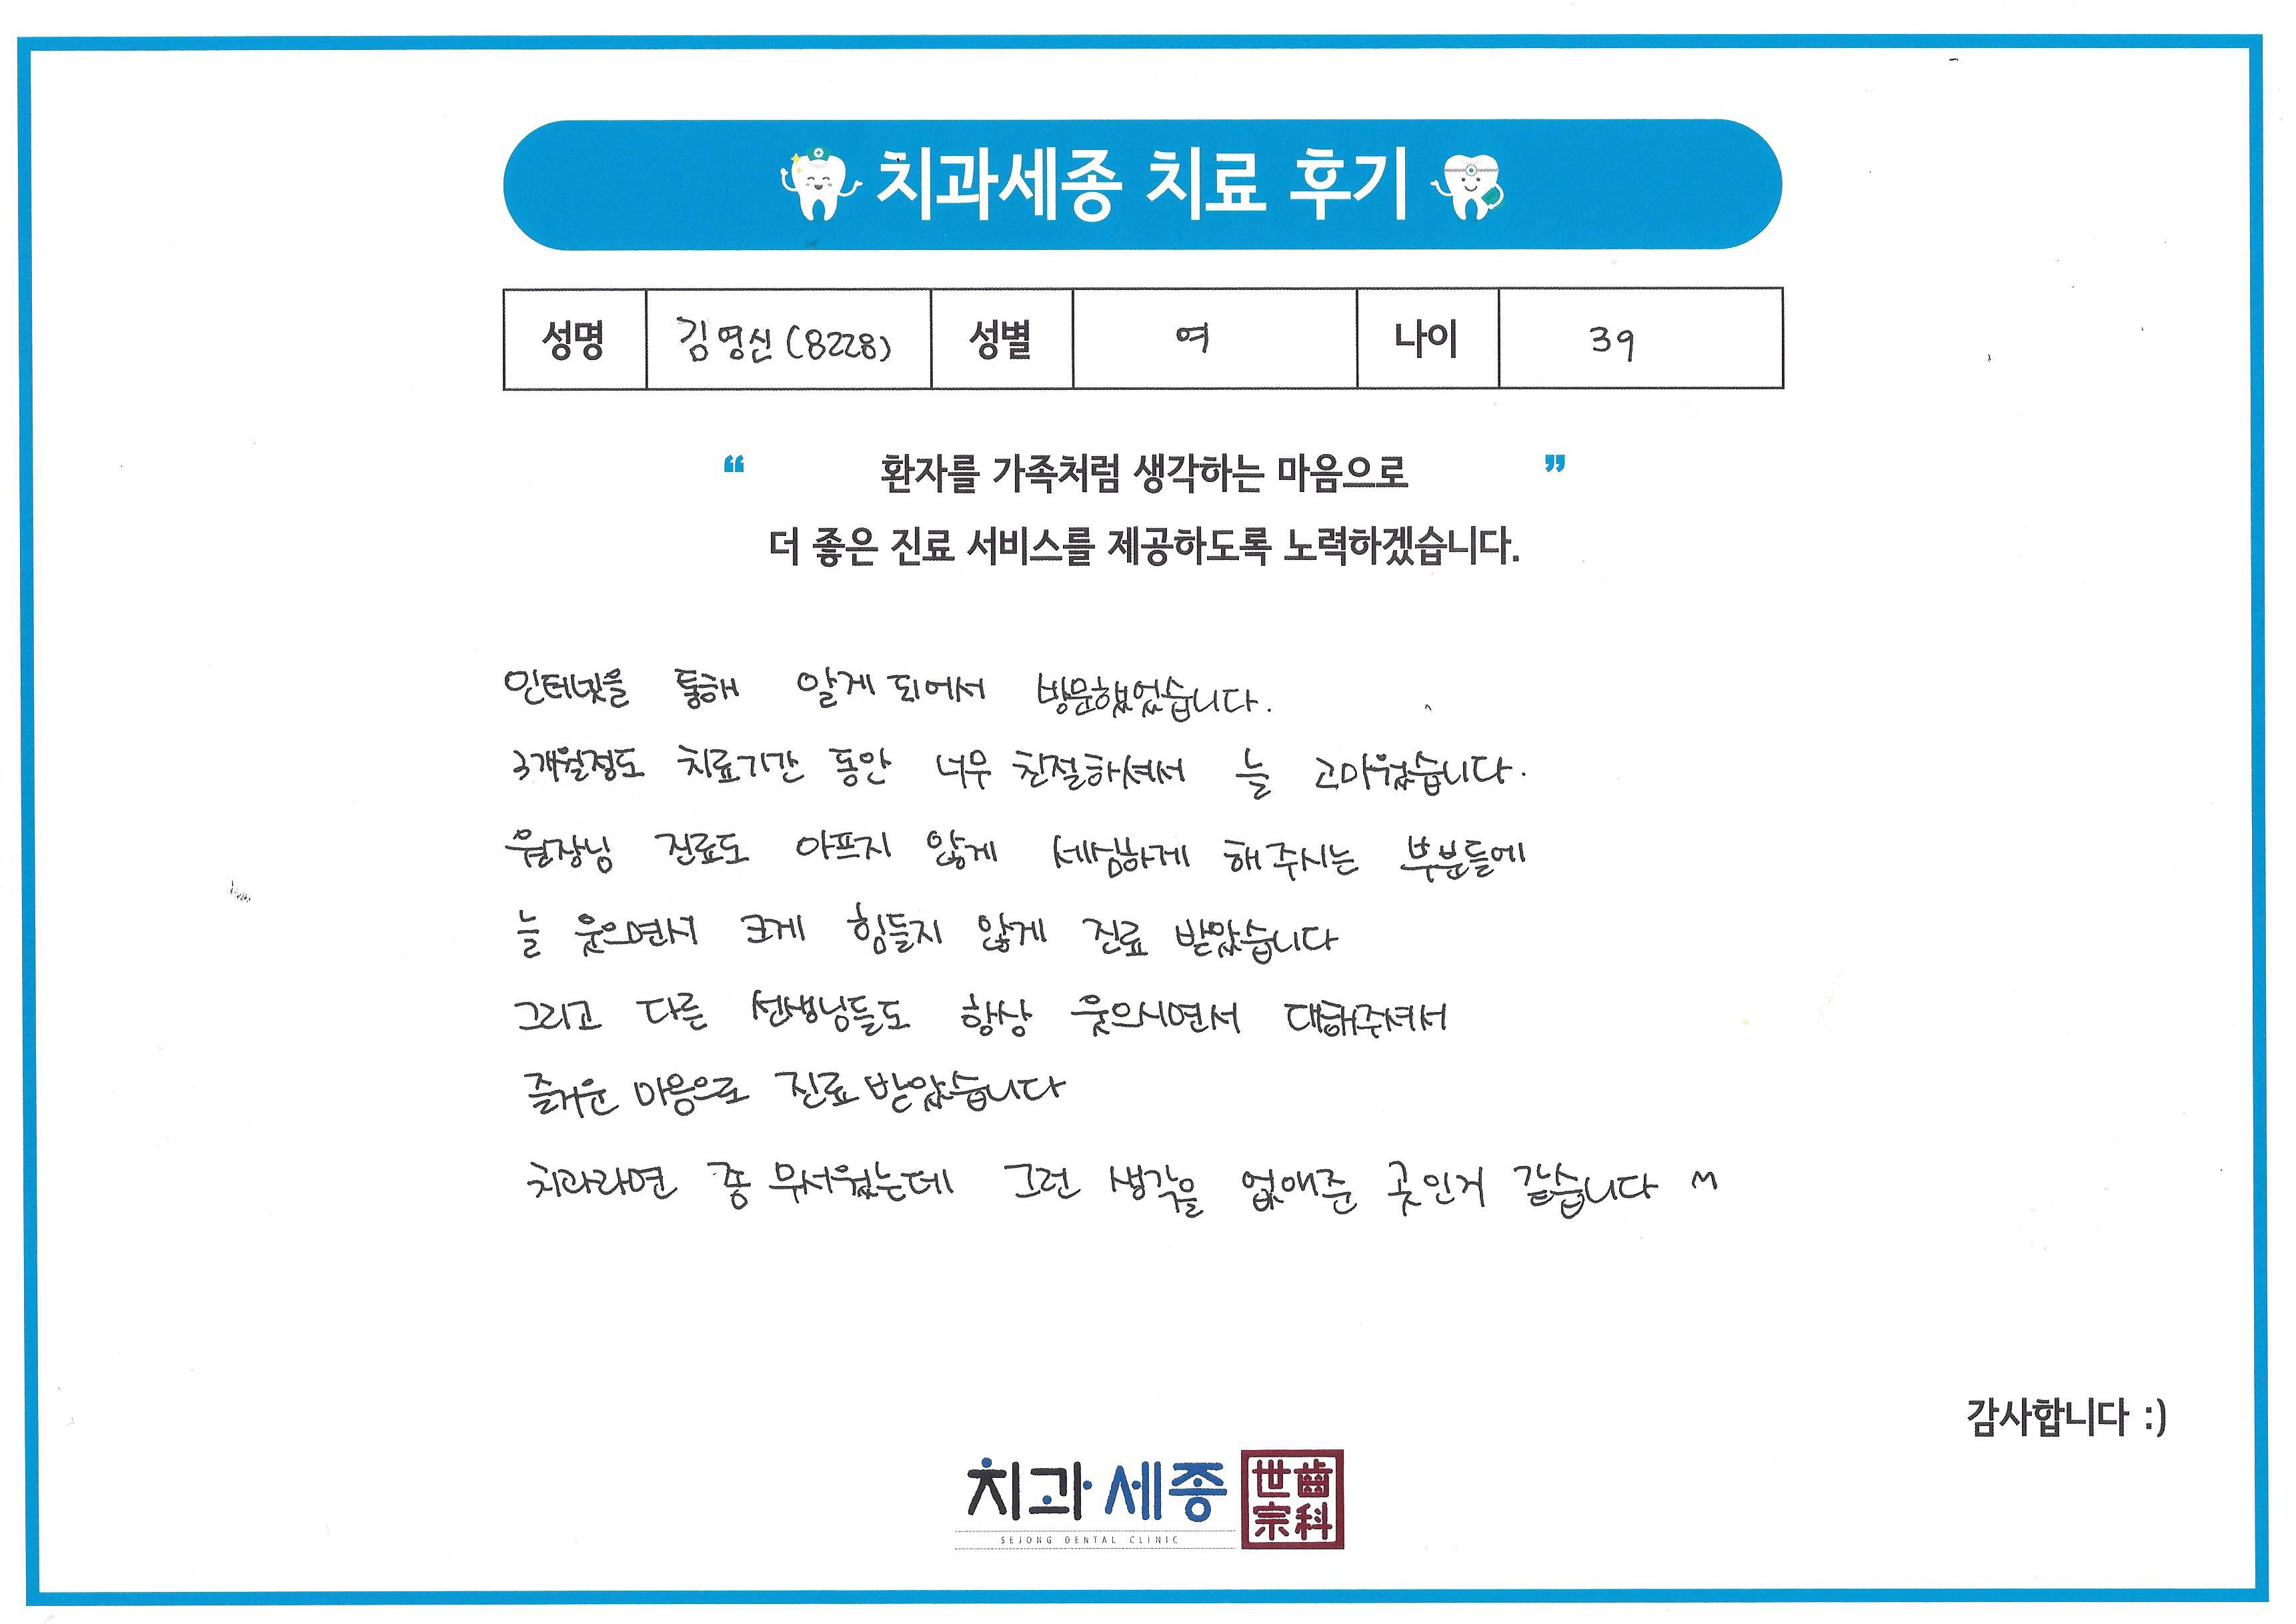 치과세종 치료 후기
성명 김영신(8228) 성별 여 나이 39
“ 환자를 가족처럼 생각하는 마음으로 ”
더 좋은 진료 서비스를 제공하도록 노력하겠습니다.
인터넷을 통해 알게 되어서 방문했었습니다.
3개월정도 치료기간 동안 너무 친절하셔서 늘 고마웠습니다.
원장님 진료도 아프지 않게 세심하게 해주시는 부분들에
늘 웃으면서 크게 힘들지 않게 진료 받았습니다
그리고 다른 선생님들도 항상 웃으시면서 대해주셔서
즐거운 마음으로 진료 받았습니다
치과라면 좀 무서웠는데 그런 생각을 없애준 곳인거 같습니다 ^^
감사합니다 :)
치과세종 世齒
宗科
SEJONG DENTAL CLINIC